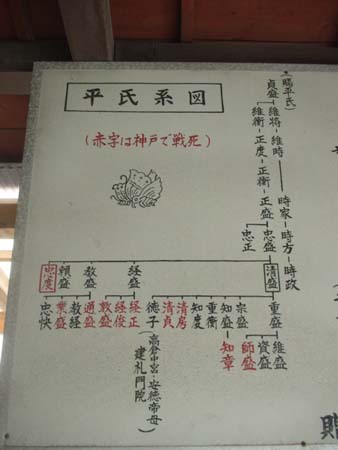 平氏系図
(赤字は神戸で戦死)
(賜平氏)
貞盛
維将 維時
維衡 正度 正衡 正盛
時家 時方 時政
忠盛
忠正
清盛
経盛
教盛
頼盛
忠度
重盛
維盛
資盛
師盛
宗盛
知盛
知章
重衡
知度
清房
清貞
徳子(高倉中宮・安徳帝母)
建礼門院
経正
経俊
敦盛
通盛
教経
業盛
忠快